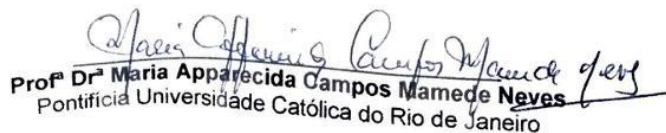 Maria Apparecida Campos Mamede Neves
Profª Drª Maria Apparecida Campos Mamede Neves
Pontifícia Universidade Católica do Rio de Janeiro